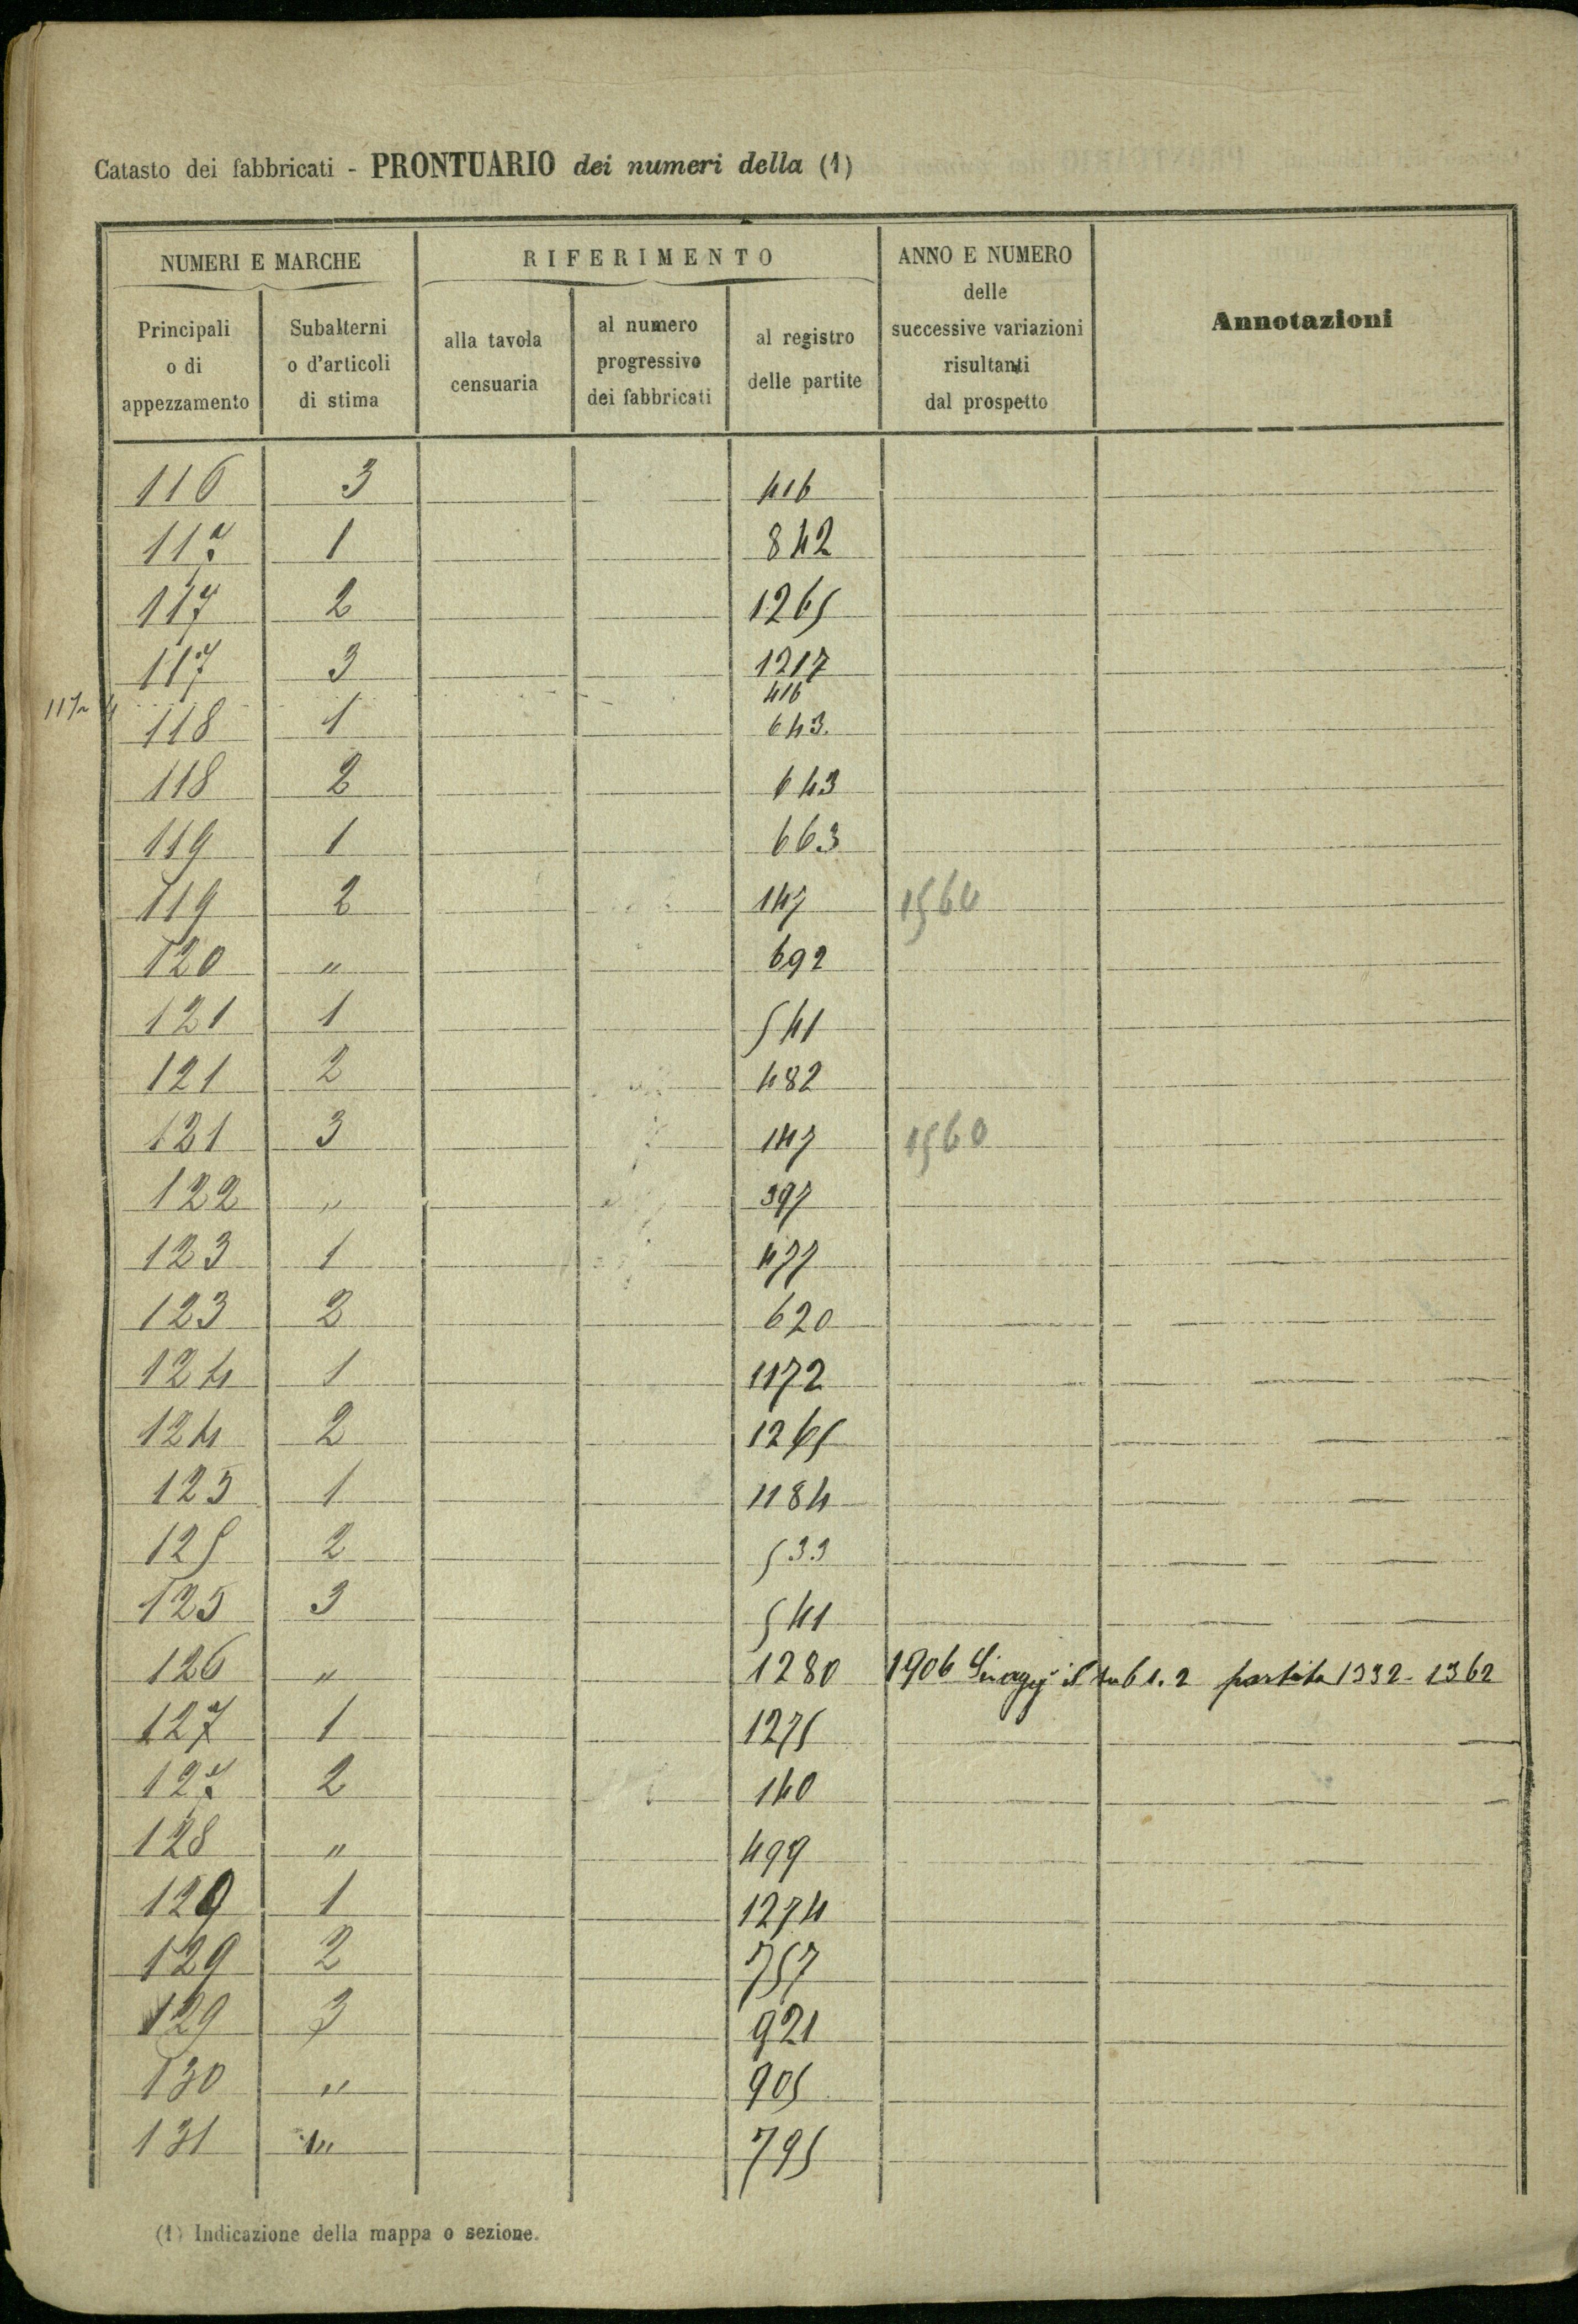 Catasto dei fabbricati - PRONTUARIO dei numeri della (1)
NUMERI E MARCHE
RIFERIMENTO
ANNO E NUMERO
delle
successive variazioni
risultanti
dal prospetto
Annotazioni
Principali
o di
appezzamento
Subalterni
o d'articoli
di stima
alla tavola
censuaria
al numero
progressivo
dei fabbricati
al registro
delle partite
116 3 416
117 1 842
117 2 1265
117 3 1217
117 4 416
118 1 643.
118 2 643
119 1 663
119 2 147 1560
120 " 692
121 1 541
121 2 482
121 3 147 1560
122 " 397
123 1 477
123 2 620
124 1 1172
124 2 1265
125 1 1184
125 2 533
125 3 541
126 " 1280 1906 il sub 1.2 partita 1332-1362
127 1 1275
127 2 140
128 " 499
129 1 1274
129 2 757
129 3 921
130 " 905
131 1" 795
(1) Indicazione della mappa o sezione.